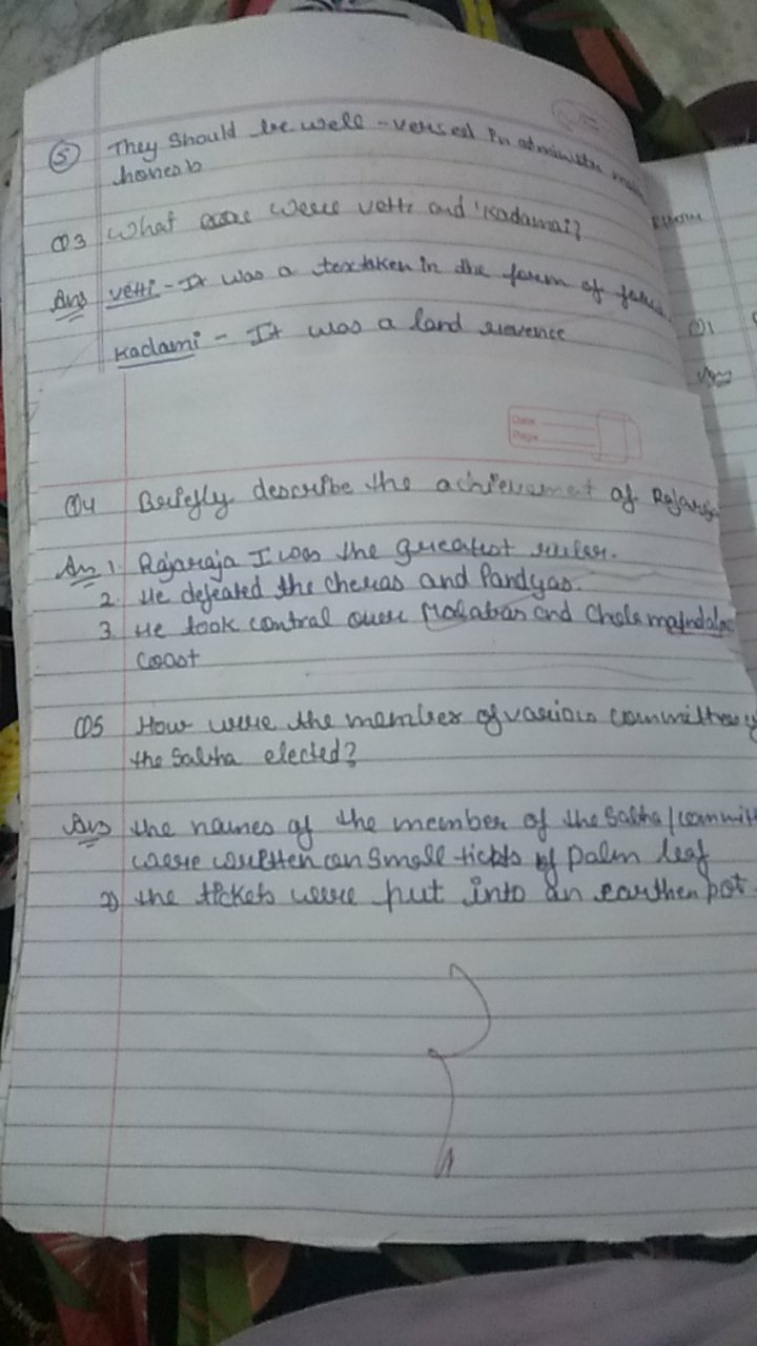 5 They should be well-versed in administra
honest
Q3 What were vetti and 'Kadamai?
Ans vetti - It was a tax taken in the form of
Kadami - It was a land revence
Date
Page
Q4 Briefly describe the achievemet of Rajaraja
Ans 1. Rajaraja I was the greatest ruler.
2. He defeated the cheras and Pandyas.
3 He took control over Malabar and Chola
Coast
Q5 How were the member of various committees
the Sabha elected?
Ans the names of the member of the Sabha/committ
were written on small tickts of palm leaf
2) the tickets were put into an earthen pot.
Q1
Ans